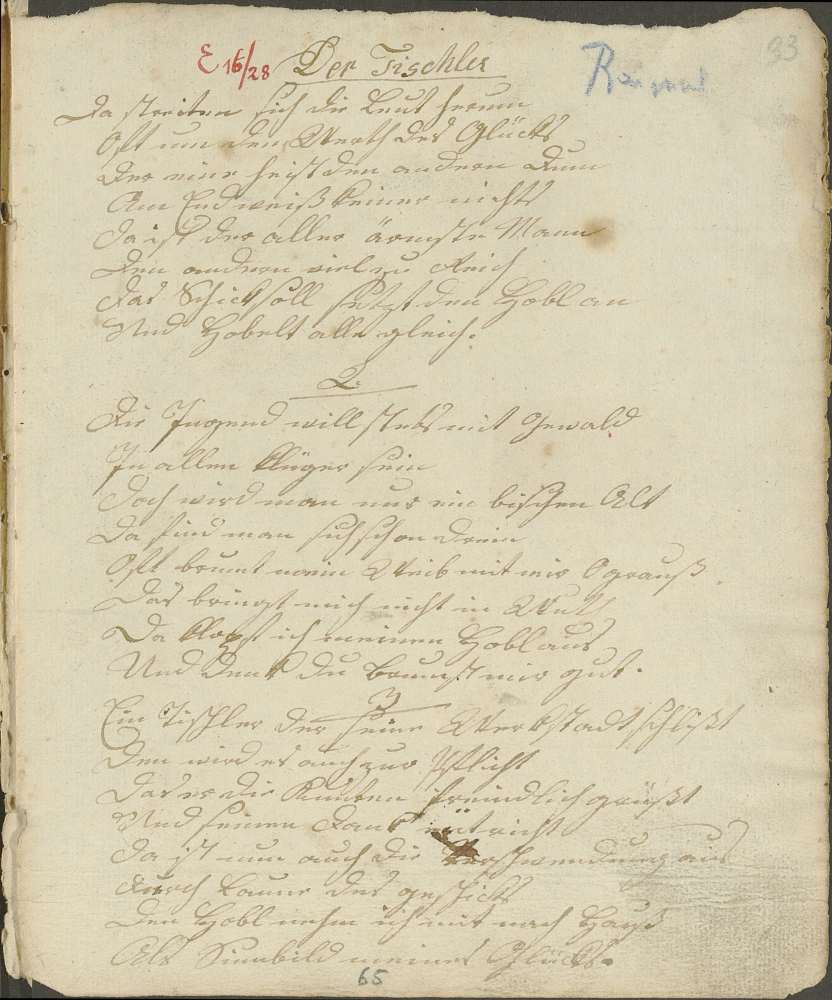 93
E 16/28 Der Tischler
Raimund
Da streiten sich die Leut herum
Oft um den Werth des Glücks
Der eine heist den andern Dum
Am End weiß keiner nichts
Da ist der aller ärmste Mann
Den andern viel zu Reich
Das Schicksall setzt den Hobl an
Und Hobelt alle gleich.
2.
Die Jugend will stets mit Gewald
In allen Klüger sein
Doch wird man nur ein bischen Alt
Da find man sich schon drein
Oft brumt mein Weib mit mir O grauß
Das bringt mich nicht in Wuth
Da klopf ich meinen Hobl aus
Und denk du brumst mir gut.
3
Ein Tischler der seine Werkstadt schlißt
Den wird es auch zur Pflicht
Das er die Kunden freindlich grüßt
Und seinen Dank
Da ist nun auch die Verschwendung aus
Durch Laune des geschicks
Den Hobl nehm ich mit nach Hauß
Als Sinnbild meines Glücks.
65